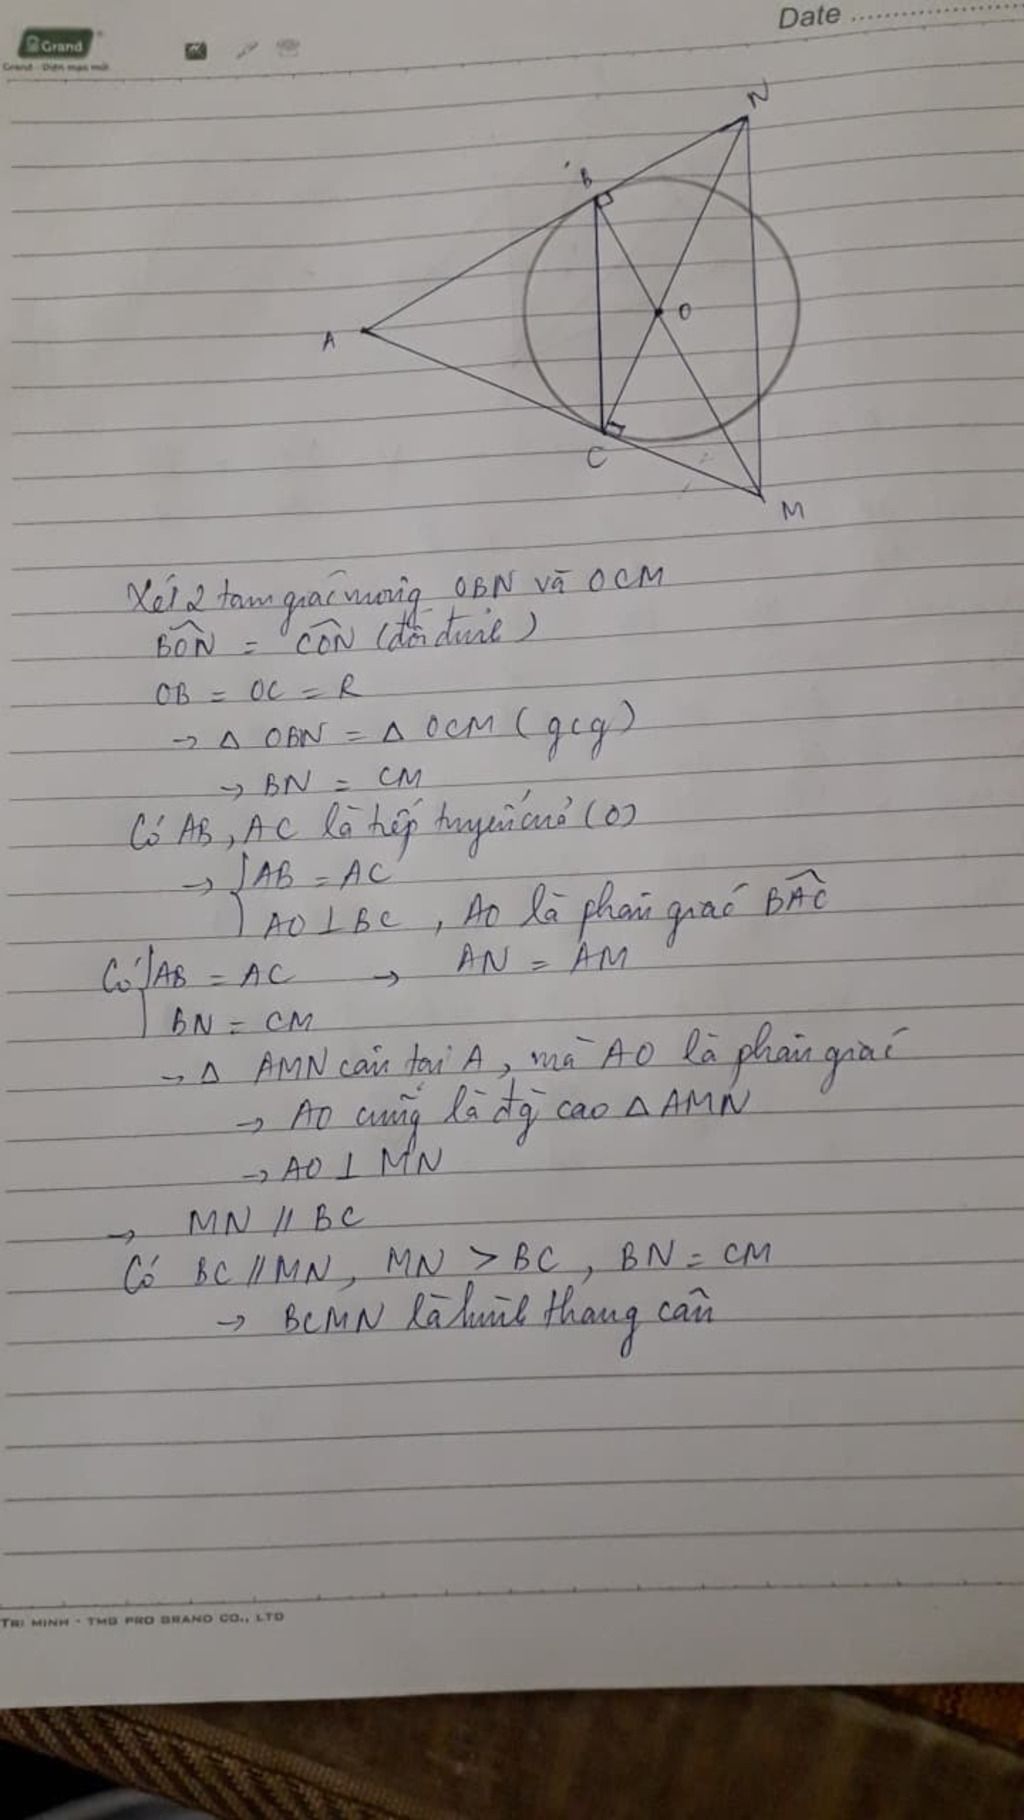 Date
Grand
Grand - Diện mạo mới
N
B
A
O
C
M
Xét 2 tam giác vuông OBN và OCM
BÔN = CÔN (đối đỉnh)
OB = OC = R
→ △ OBN = △ OCM (gcg)
→ BN = CM
Có AB, AC là tiếp tuyến của (O)
→ { AB = AC
AO ⊥ BC, AO là phân giác BÂC
Có { AB = AC → AN = AM
BN = CM
→ △ AMN cân tại A, mà AO là phân giác
→ AO cũng là đg cao △ AMN
→ AO ⊥ MN
→ MN // BC
Có BC // MN, MN > BC, BN = CM
→ BCMN là hình thang cân
TRI MINH - TMG PRO GRAND CO., LTD